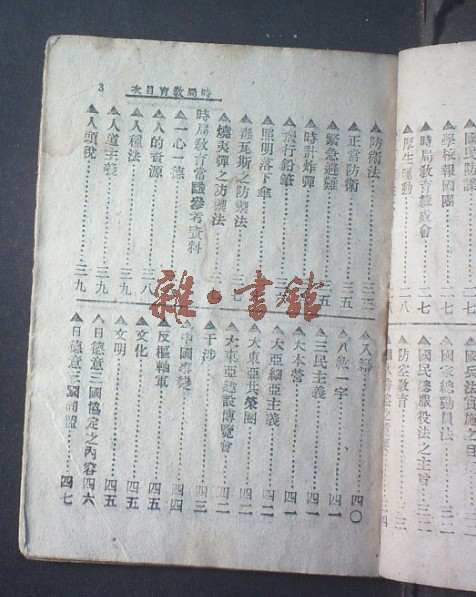 學校報國團
時局教育練成會……二七
厚生運動……二八
國家總動員法……三二
國民總服役法之主旨……三二
防空教育……三三
時局教育目次
3
▲防衛法……三三
▲正當防衛……三五
▲緊急避難……三五
▲時計炸彈
鉛筆
▲照明落下傘
▲毒瓦斯之防禦法……三七
▲燒夷彈之防禦法
時局教育常識參考資料
▲一心一德
▲人的資源……三八
▲人種法……三九
▲人道主義……三九
▲人頭稅……三九
▲入籍……四〇
▲八紘一宇……四一
▲三民主義……四一
▲大本營……四一
▲大亞細亞主義……四二
▲大東亞共榮圈……四二
▲大東亞建設博覽會……四二
▲干涉……四三
▲中國事變……四四
▲反樞軸軍……四四
▲文化……四五
▲文明……四五
▲日德意三國協定之內容……四六
▲日德意三國同盟……四七
雜·書館